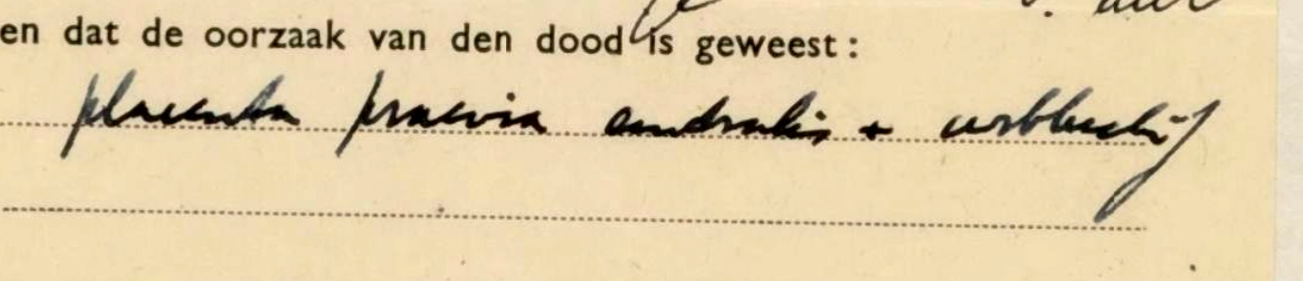 en dat de oorzaak van den dood is geweest:
placenta praevia centralis + verbloeding